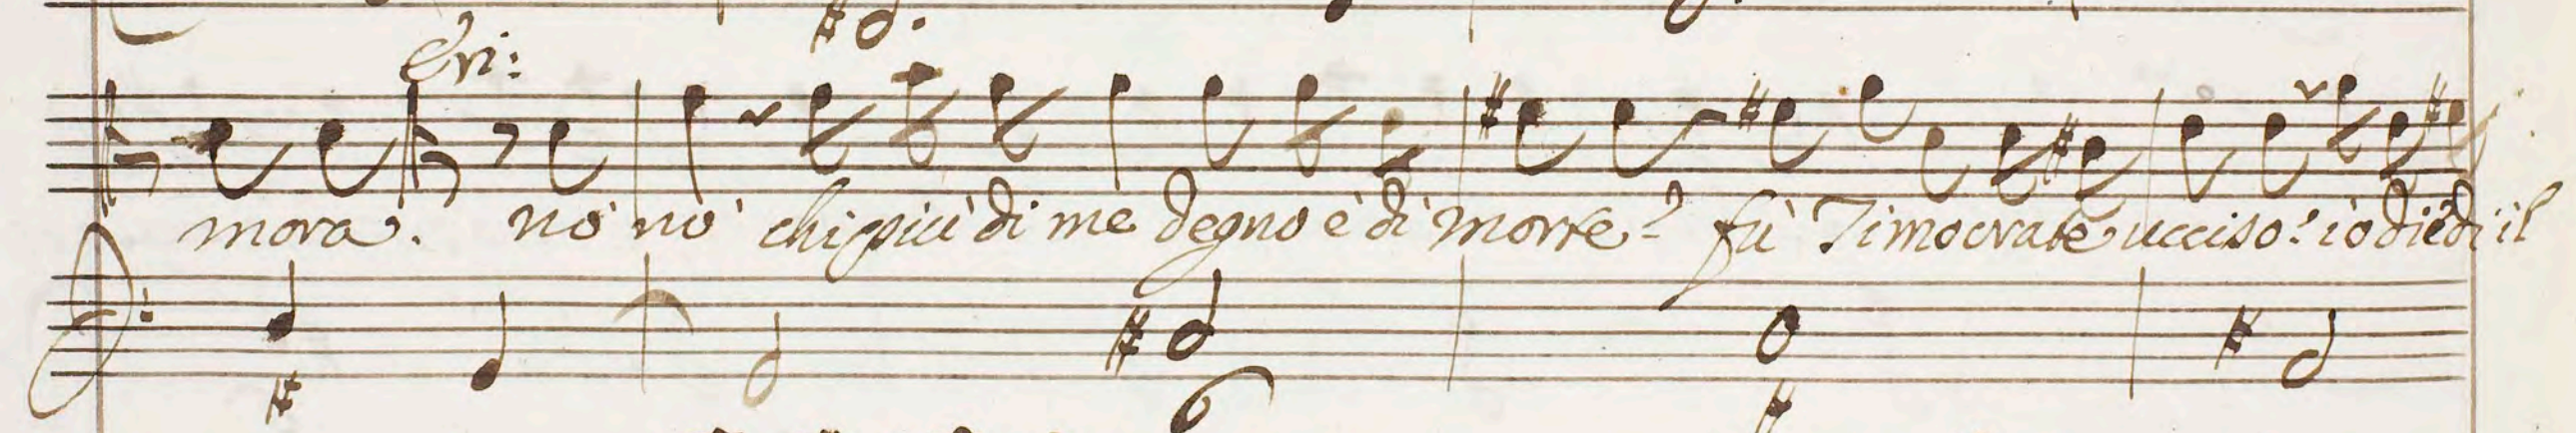 Eri:
mora. nò nò chi più di me degno è di morre? fù Timocrate ucciso? io diedi il